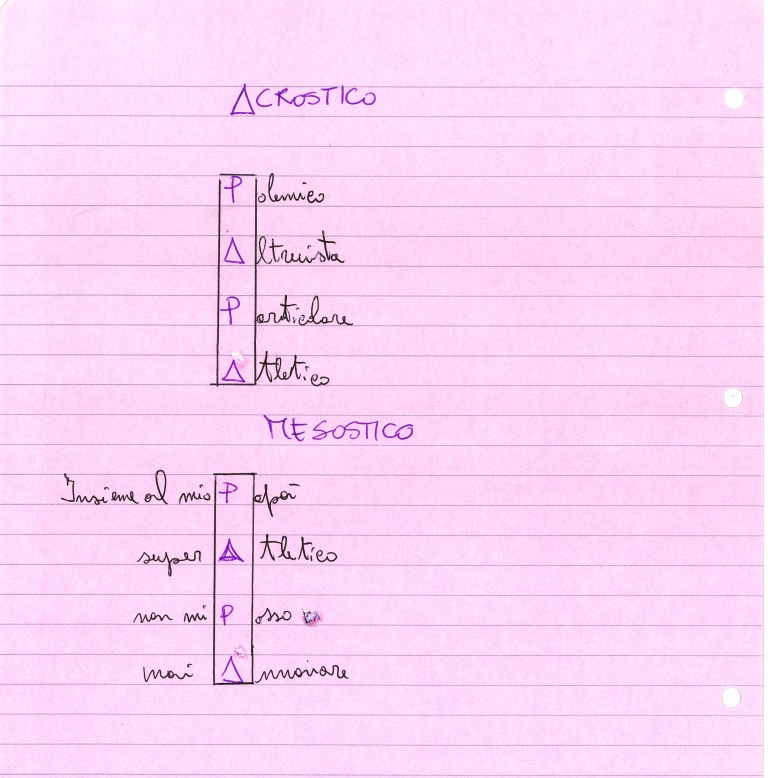 ACROSTICO
Polemico
Altruista
Particolare
Atletico
MESOSTICO
Insieme al mio Papà
super Atletico
non mi Posso
mai Annoiare